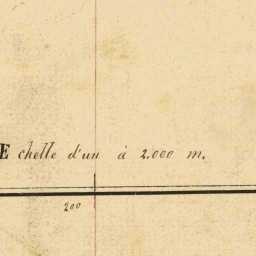 Echelle d'un à 2.000 m.
200